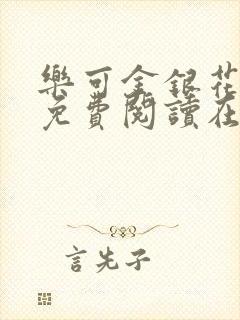 樂可金銀花
免費閱讀在
言先子